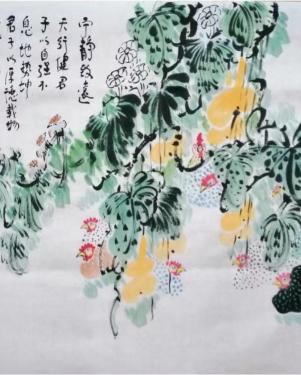 宁静致遠
天行健君
子以自强不
息地势坤
君子以厚德载物